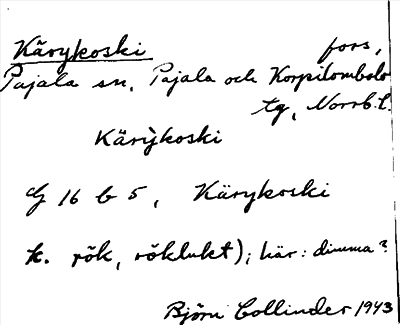 Kärykoski fors,
Pajala sn, Pajala och Korpilombolo
tg, Norrb. l.
Kärỳkoski
G 16 b 5, Kärykoski
k. rök, röklukt); här: dimma?
Björn Collinder 1943